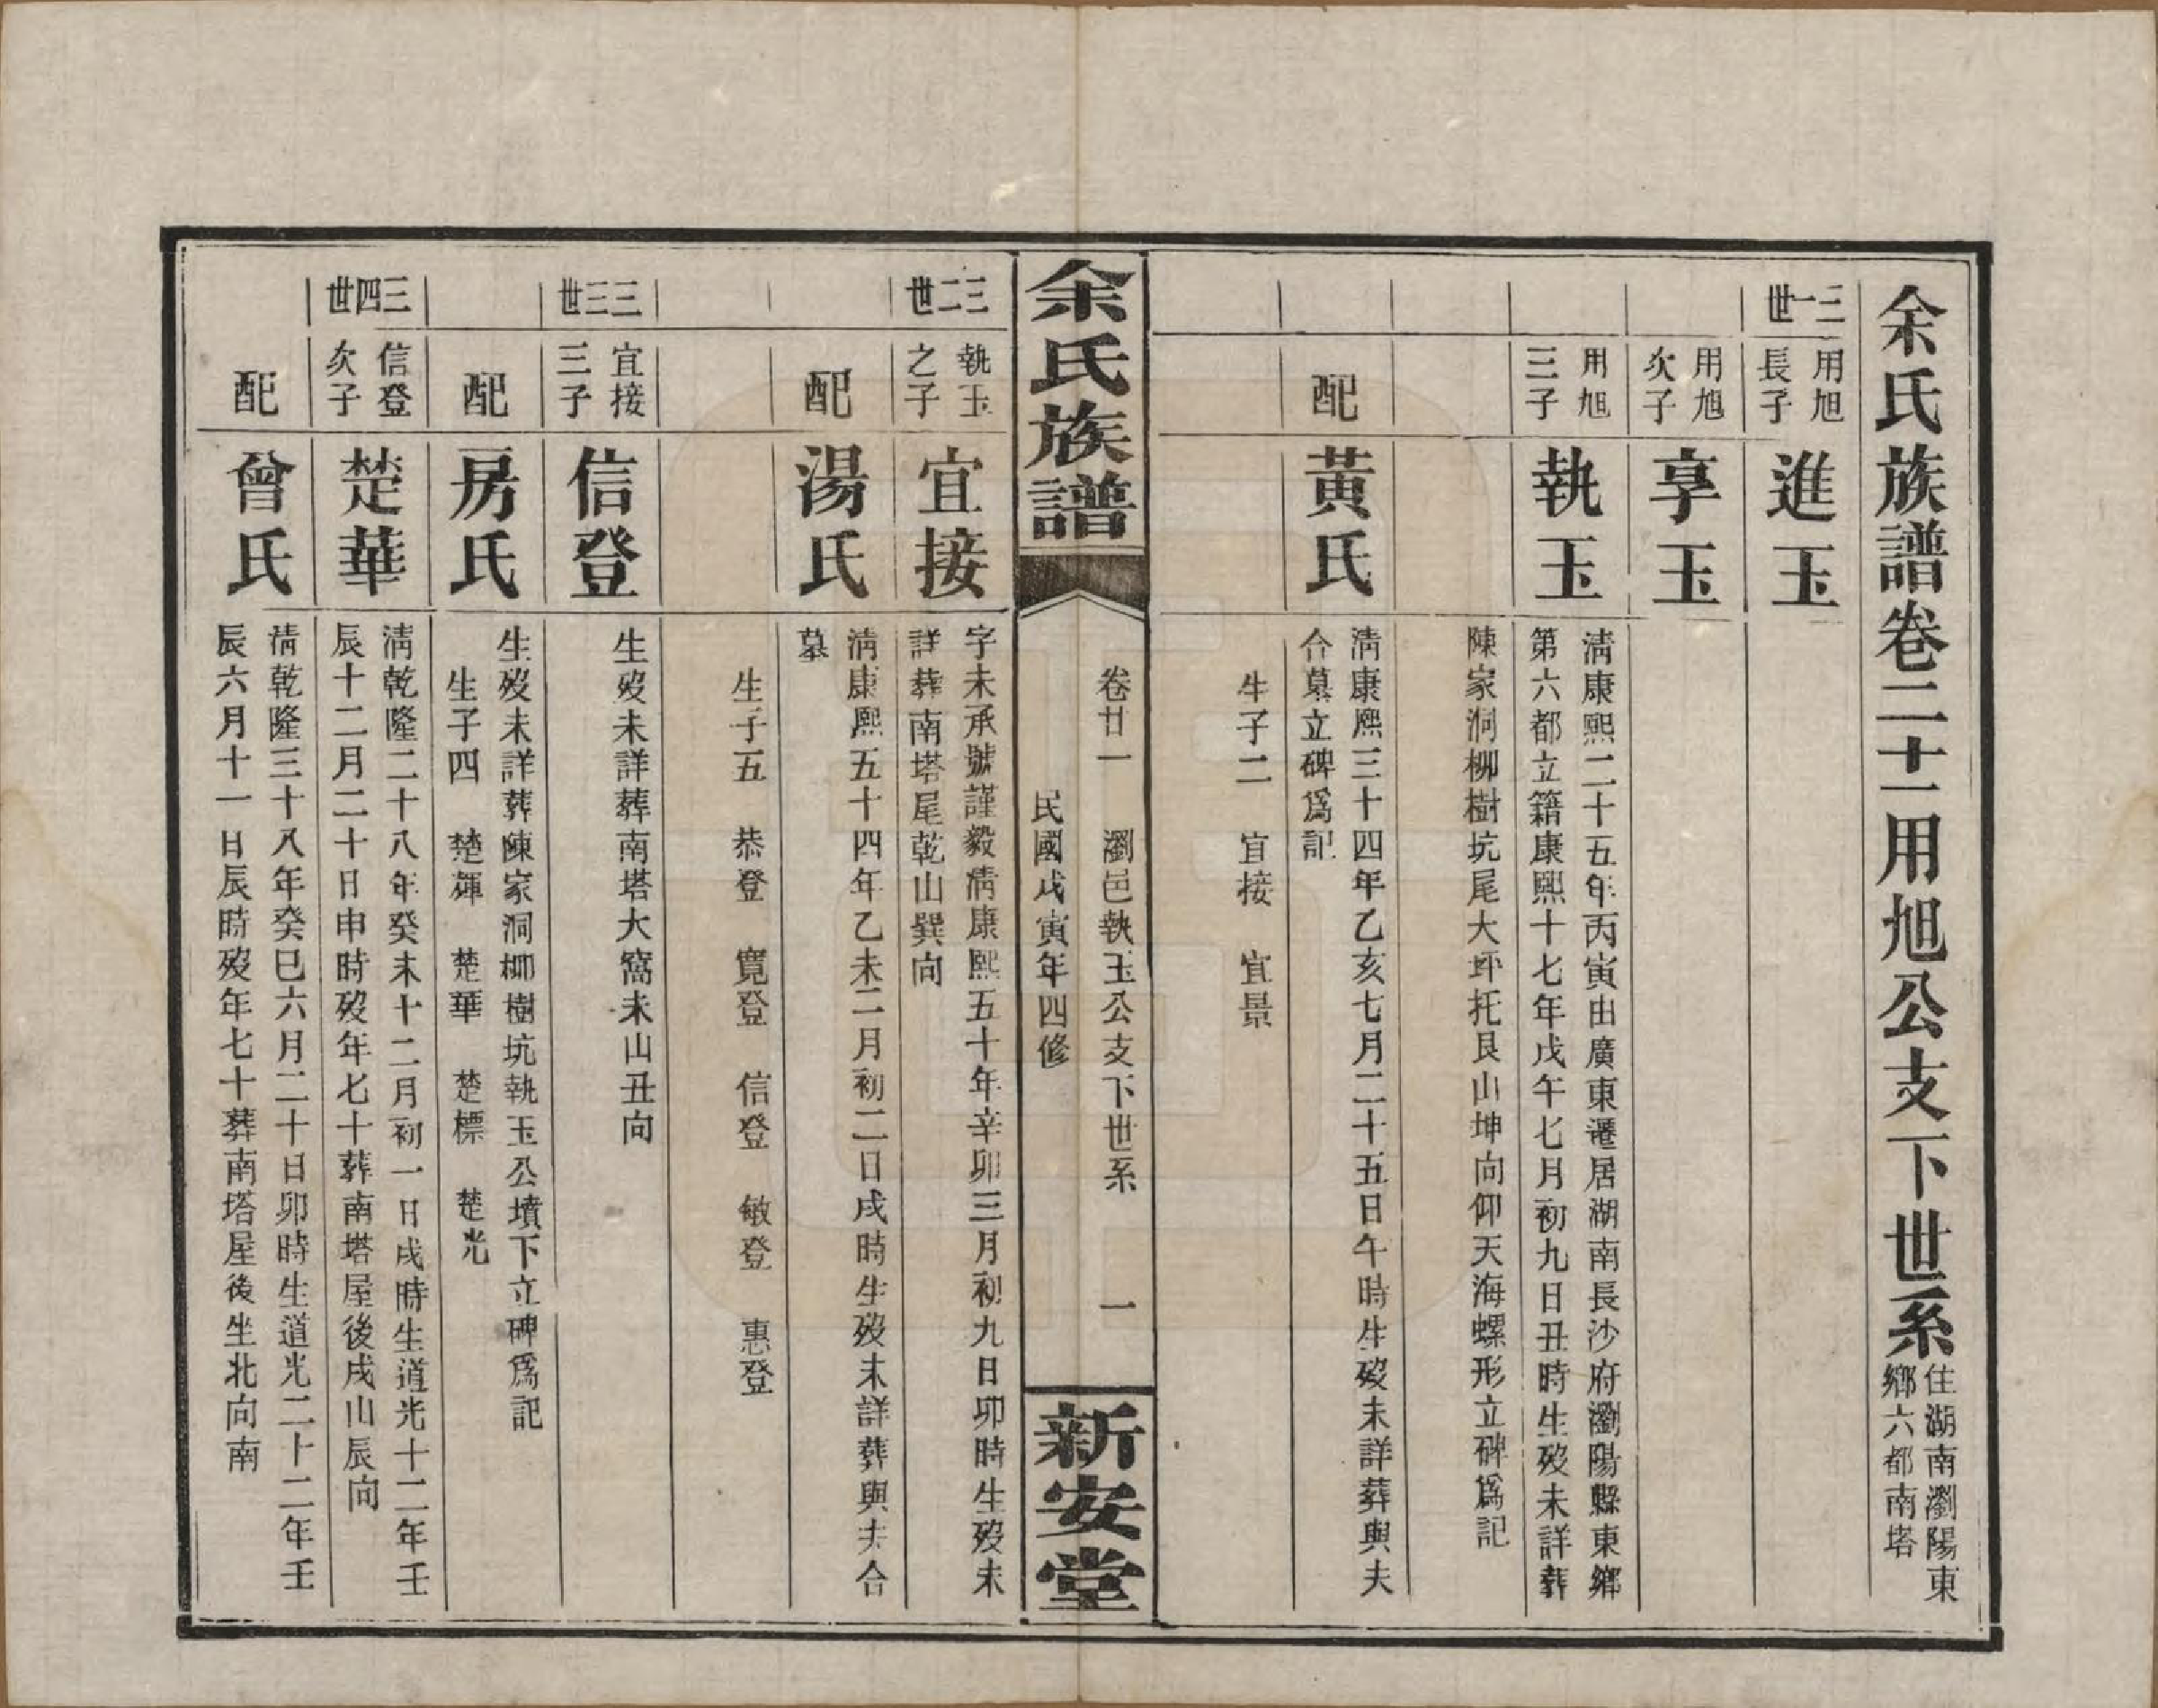 余氏族譜卷二十一用旭公支下世系
住湖南瀏陽東
鄉六都南塔
三一世
用旭
長子
進玉
用旭
次子
享玉
用旭
三子
執玉
清康熙二十五年丙寅由廣東遷居湖南長沙府瀏陽縣東鄉
第六都立籍康熙十七年戊午七月初九日丑時生歿未詳葬
陳家洞柳樹坑尾大坪托艮山坤向仰天海螺形立碑爲記
配
黃氏
清康熙三十四年乙亥七月二十五日午時生歿未詳葬與夫
合墓立碑爲記
生子二 宜接 宜景
余氏族譜
卷廿一 瀏邑執玉公支下世系 一
民國戊寅年四修
新安堂
三二世
執玉
之子
宜接
字未承號謹毅清康熙五十年辛卯三月初九日卯時生歿未
詳葬南塔尾乾山巽向
配
湯氏
清康熙五十四年乙未二月初二日戌時生歿未詳葬與夫合
墓
生子五 恭登 寬登 信登 敏登 惠登
三三世
宜接
三子
信登
生歿未詳葬南塔大窩未山丑向
配
房氏
生歿未詳葬陳家洞柳樹坑執玉公墳下立碑爲記
生子四 楚輝 楚華 楚標 楚光
三四世
信登
次子
楚華
清乾隆二十八年癸未十二月初一日戌時生道光十二年壬
辰十二月二十日申時歿年七十葬南塔屋後戌山辰向
配
曾氏
清乾隆三十八年癸巳六月二十日卯時生道光二十二年壬
辰六月十一日辰時歿年七十葬南塔屋後坐北向南